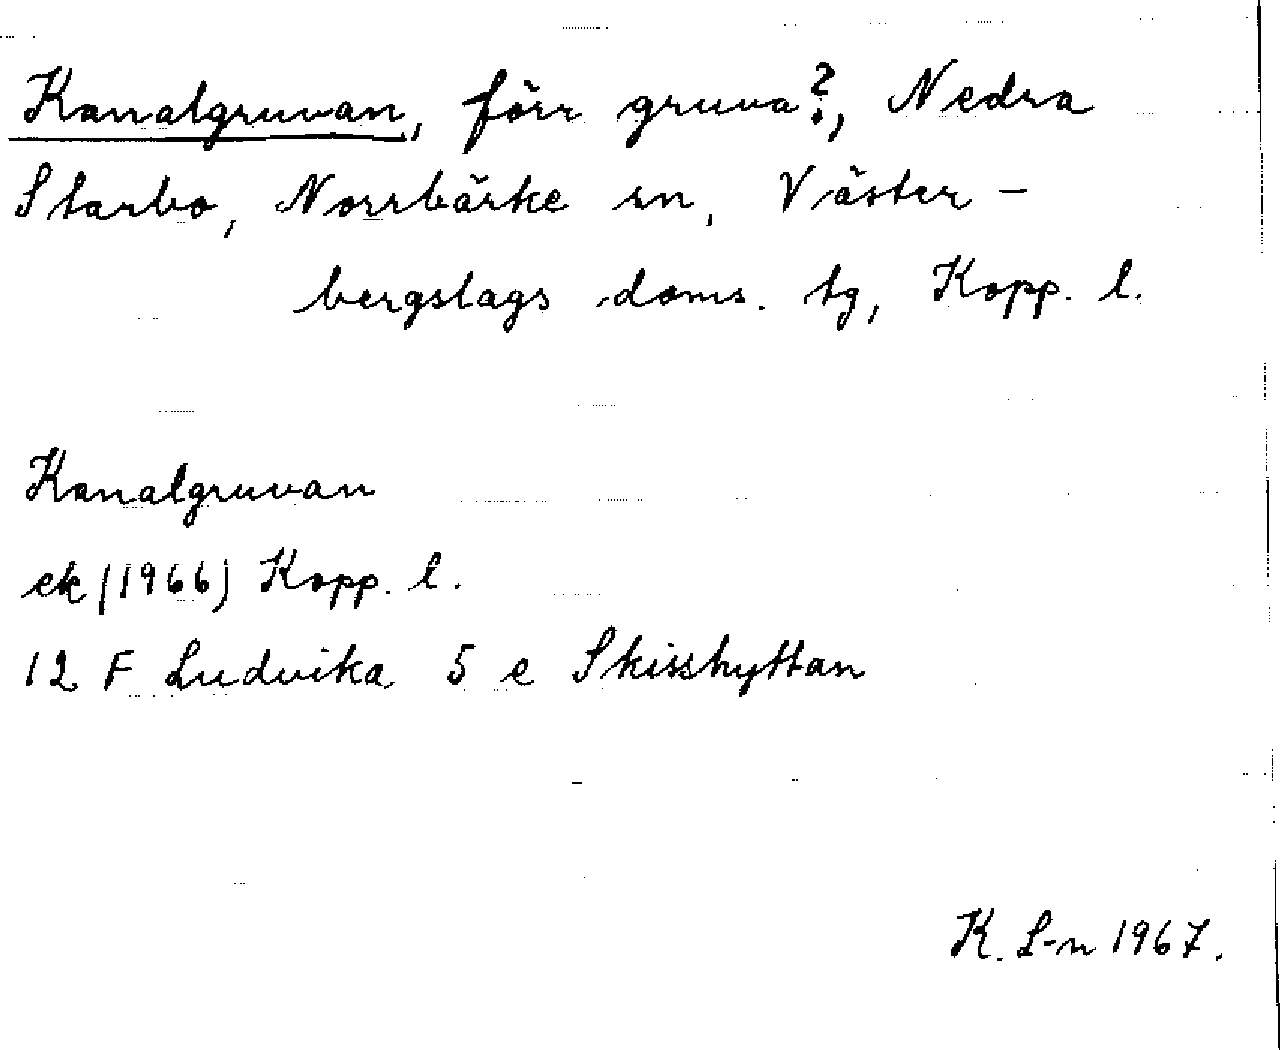 Kanalgruvan, förr gruva?, Nedra
Starbo, Norrbärke sn, Väster-
bergslags doms. tg, Kopp. l.
Kanalgruvan
ek (1966) Kopp. l.
12 F Ludvika 5 e Skisshyttan
K. L-n 1967.